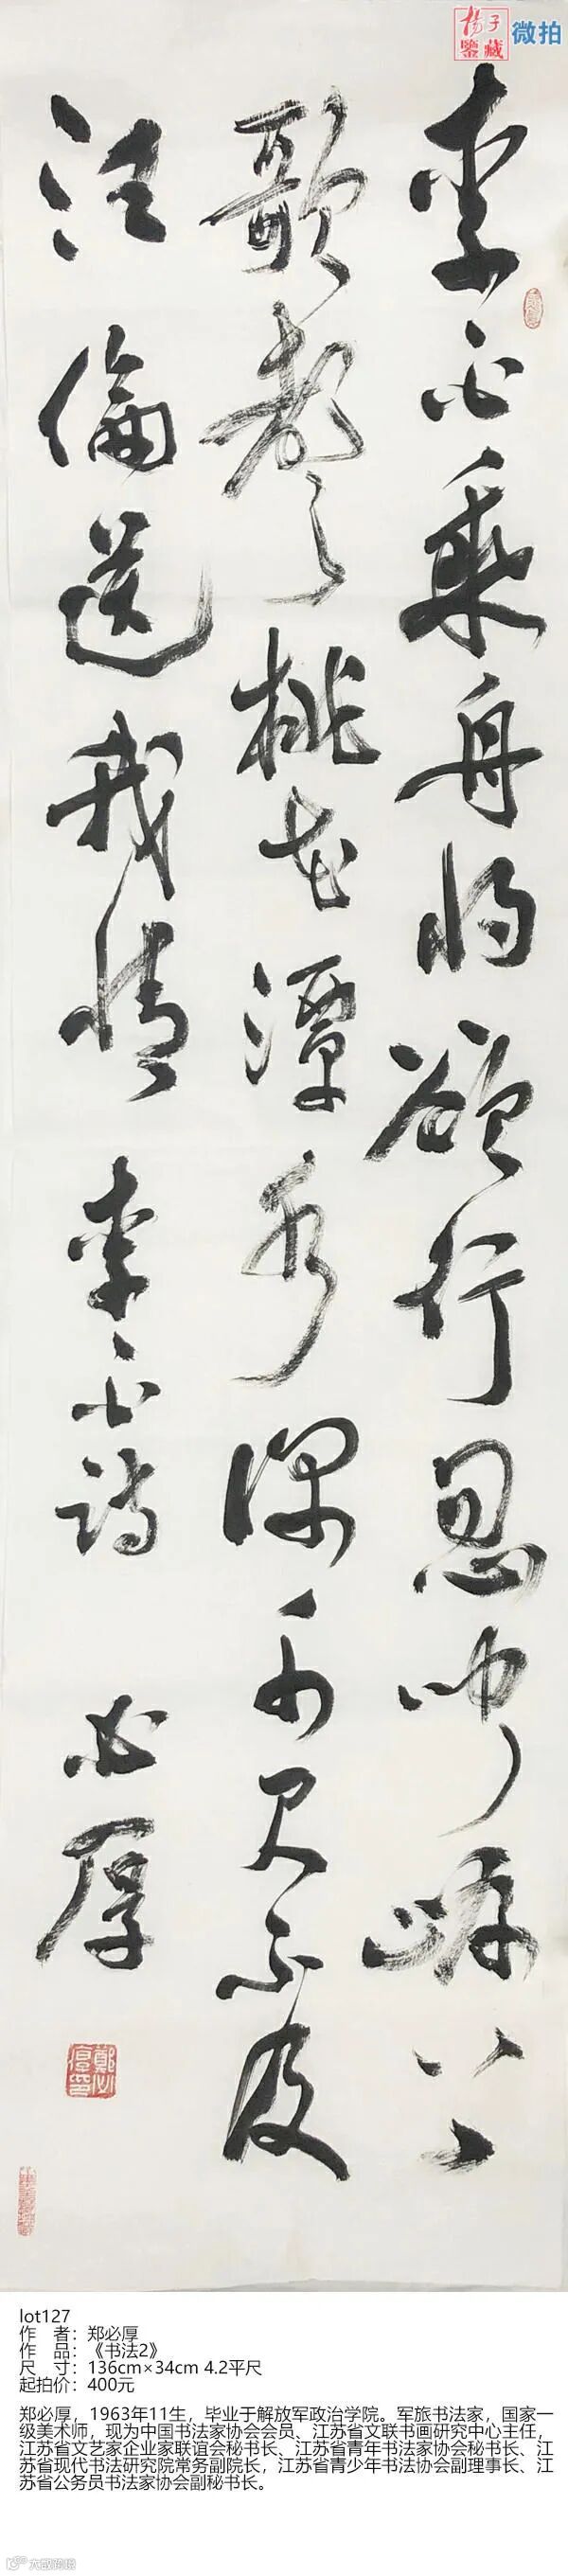 揚子
鑒藏
微拍
李白乘舟将欲行忽聞岸上
歌聲桃花潭水深千尺不及
汪倫送我情 李白詩 必厚
鄭必厚印
lot127
作 者：郑必厚
作 品：《书法2》
尺 寸：136cm×34cm 4.2平尺
起拍价：400元
郑必厚，1963年11生，毕业于解放军政治学院。军旅书法家，国家一
级美术师，现为中国书法家协会会员、江苏省文联书画研究中心主任，
江苏省文艺家企业家联谊会秘书长、江苏省青年书法家协会秘书长、江
苏省现代书法研究院常务副院长，江苏省青少年书法协会副理事长、江
苏省公务员书法家协会副秘书长。